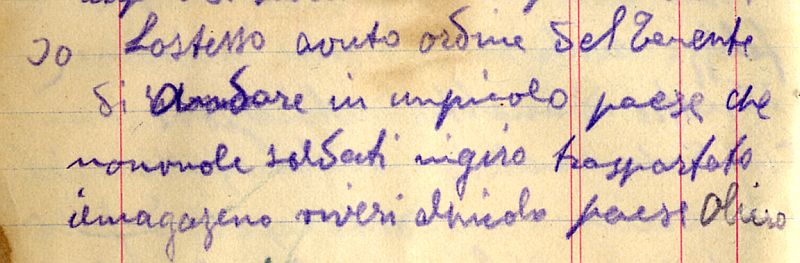 Io Lostesso avuto ordine del Tenente
di Andare in unpicolo paese che
nonvole soldati ingiro trasportato
ilmagazeno viveri alpicolo paese